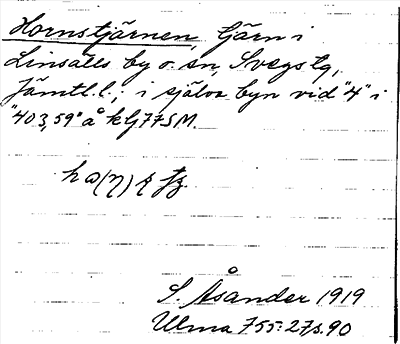 Hornstjärnen, tjärn i
Linsälls by o. sn, Svegs tg,
Jämtl. l.; i själva byn vid "4" i
"403,59" å kbj 77 S M.
S. Åsander 1919
Ulma 755: 27 s. 90